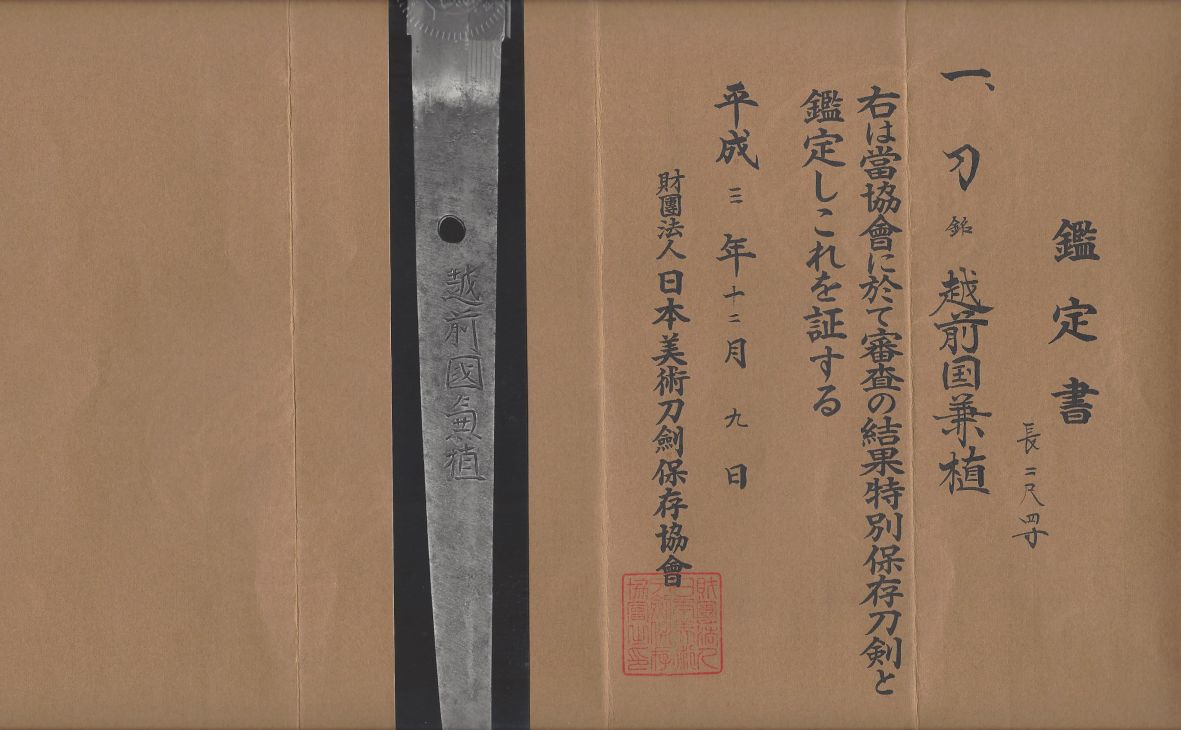 鑑定書
一、刀 銘 越前国兼植
長二尺四寸
右は當協會に於て審査の結果特別保存刀剣と
鑑定しこれを証する
平成三年十二月九日
財團法人日本美術刀劍保存協會
越前國兼植